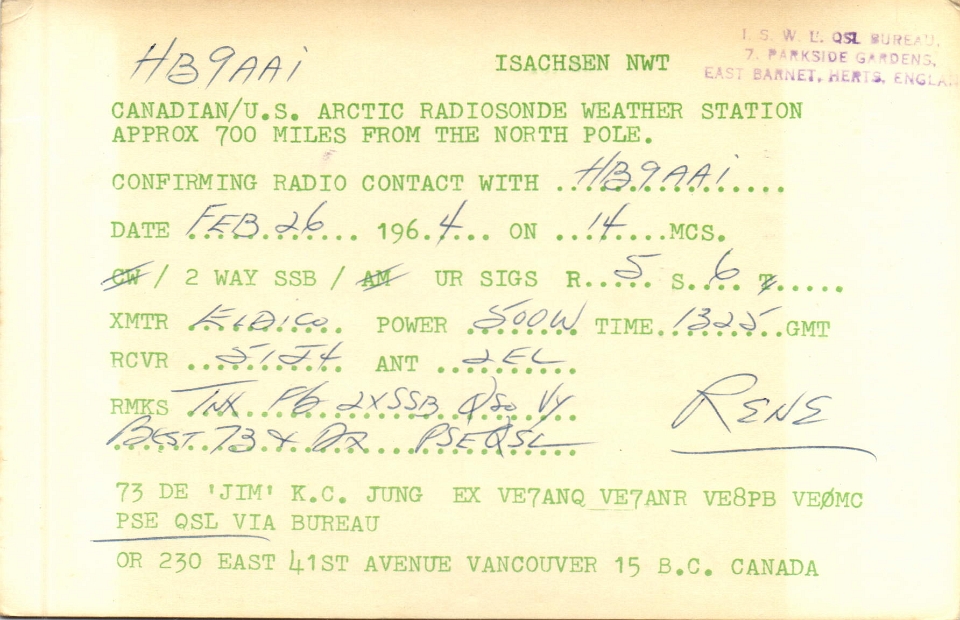 HB9AAi
ISACHSEN NWT
I. S. W. L. QSL BUREAU,
7, PARKSIDE GARDENS,
EAST BARNET, HERTS, ENGLAN
CANADIAN/U.S. ARCTIC RADIOSONDE WEATHER STATION
APPROX 700 MILES FROM THE NORTH POLE.
CONFIRMING RADIO CONTACT WITH ..HB9AAi....
DATE FEB 26 ... 196.4... ON ...14....MCS.
CW / 2 WAY SSB / AM UR SIGS R...5.. S...6. T.....
XMTR ELDICO.. POWER .500W TIME.1325.GMT
RCVR ..51J4 ANT ...2EL
RMKS TNX FB 2XSSB QSO VY
BEST 73 & DX PSE QSL
RENE
73 DE 'JIM' K.C. JUNG EX VE7ANQ VE7ANR VE8PB VEØMC
PSE QSL VIA BUREAU
OR 230 EAST 41ST AVENUE VANCOUVER 15 B.C. CANADA